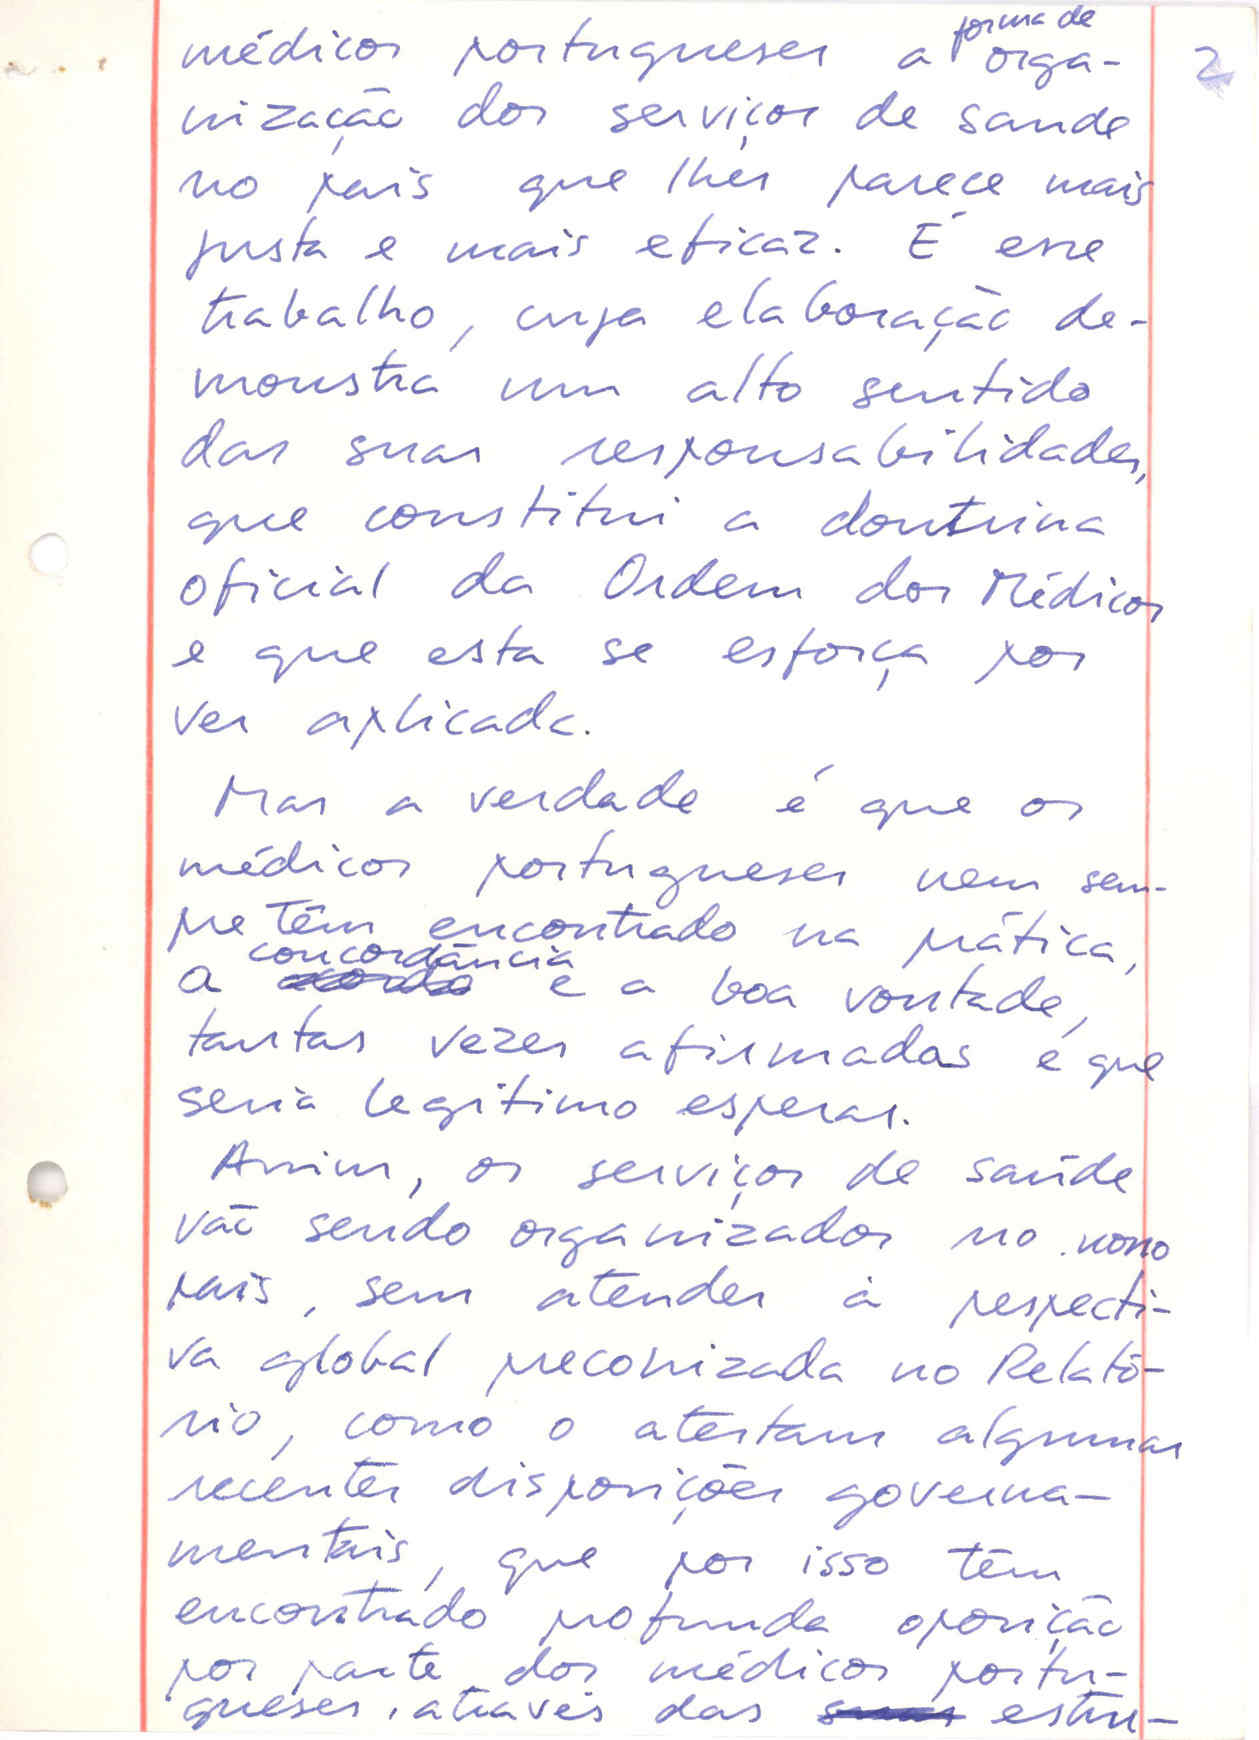 forma de
médicos portugueses a orga- 2
nização dos serviços de saude
no pais que lhes parece mais
justa e mais eficaz. É esse
trabalho, cuja elaboração de-
monstra um alto sentido
das suas responsabilidades,
que constitui a doutrina
oficial da Ordem dos Médicos
e que esta se esforça por
ver aplicada.
Mas a verdade é que os
médicos portugueses nem sem-
pre têm encontrado na prática,
concordância
a e a boa vontade,
tantas vezes afirmadas e que
seria legitimo esperar.
Assim, os serviços de saúde
vão sendo organizados no nosso
pais, sem atender à perspecti-
va global preconizada no Relató-
rio, como o atestam algumas
recentes disposições governa-
mentais, que por isso têm
encontrado profunda oposição
por parte dos médicos portu-
gueses, através das suas estru-